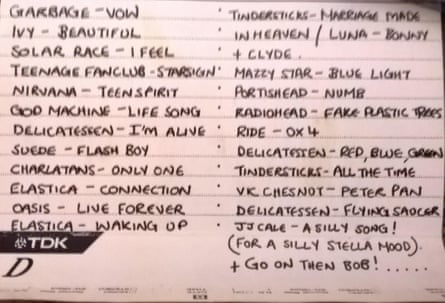 GARBAGE - VOW
IVY - BEAUTIFUL
SOLAR RACE - I FEEL
TEENAGE FANCLUB - STARSIGN
NIRVANA - TEEN SPIRIT
GOD MACHINE - LIFE SONG
DELICATESSEN - I'M ALIVE
SUEDE - FLASH BOY
CHARLATANS - ONLY ONE
ELASTICA - CONNECTION
OASIS - LIVE FOREVER
ELASTICA - WAKING UP
TDK
D
TINDERSTICKS - MARRIAGE MADE
IN HEAVEN / LUNA - BONNY
+ CLYDE.
MAZZY STAR - BLUE LIGHT
PORTISHEAD - NUMB
RADIOHEAD - FAKE PLASTIC TREES
RIDE - OX4
DELICATESSEN - RED, BLUE, GREEN
TINDERSTICKS - ALL THE TIME
VIC CHESNOT - PETER PAN
DELICATESSEN - FLYING SAUCER
JJ CALE - A SILLY SONG!
(FOR A SILLY STELLA MOOD).
+ GO ON THEN BOB! .....